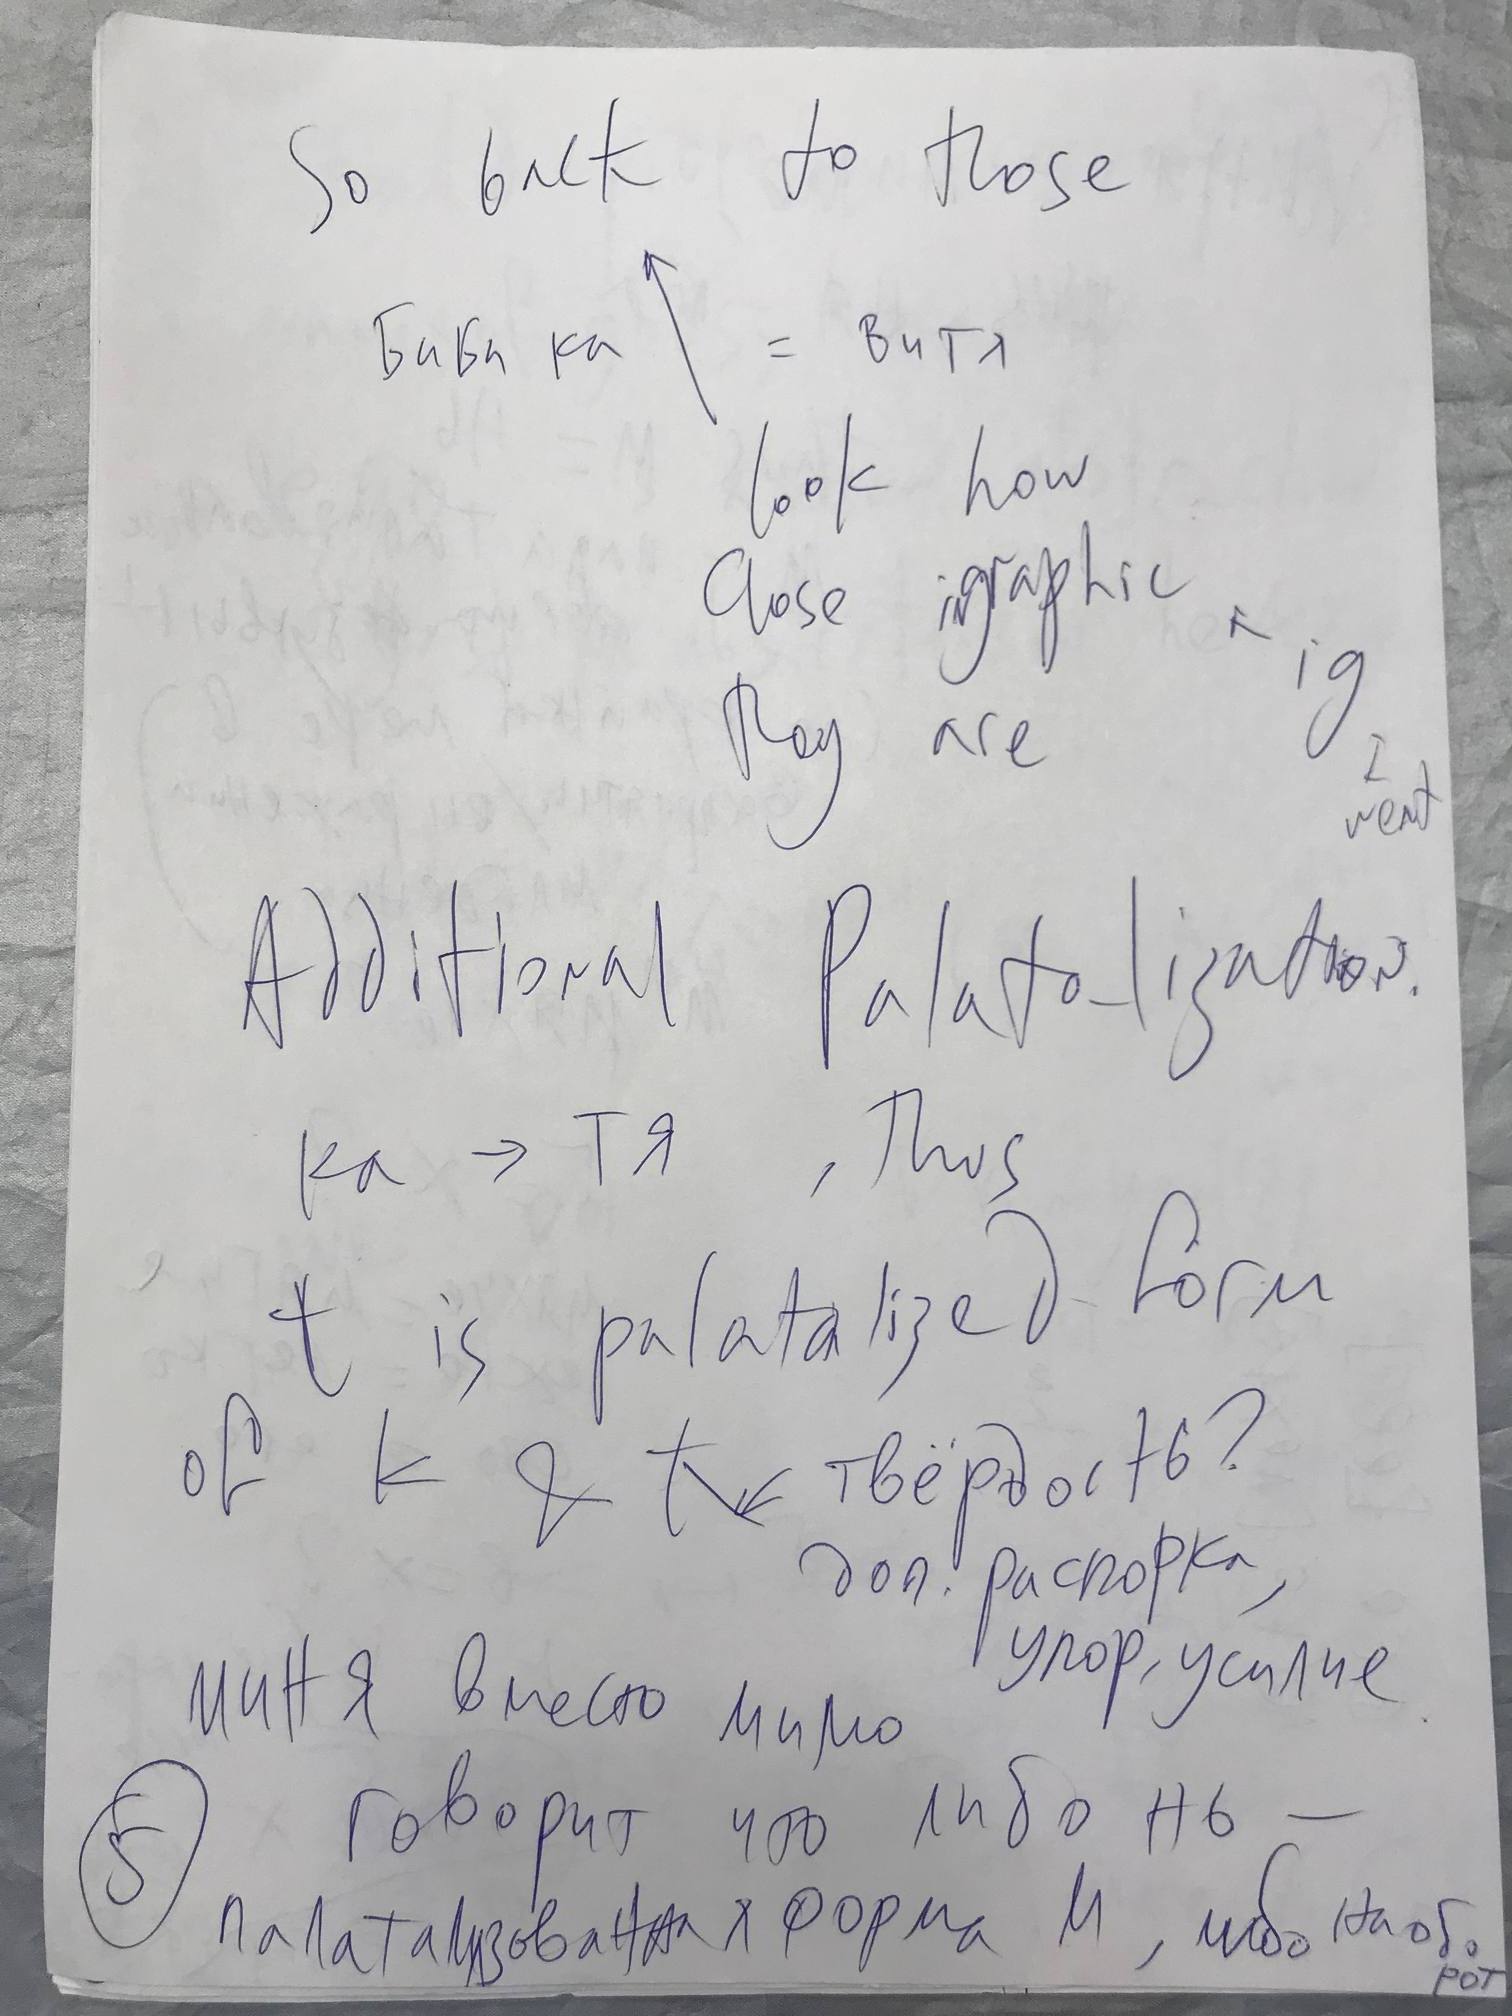 So back to those
Бибика = Витя
look how
close igraphic
they are
ig
went
Additional Palato-lization.
ка → тя, thus
t is palatalized form
of k & t ← твёрдость?
доп. распорка,
упор, усилие
миня вместо мимо
говорит что либо нь –
5
палатализованная форма м, либо наоборот